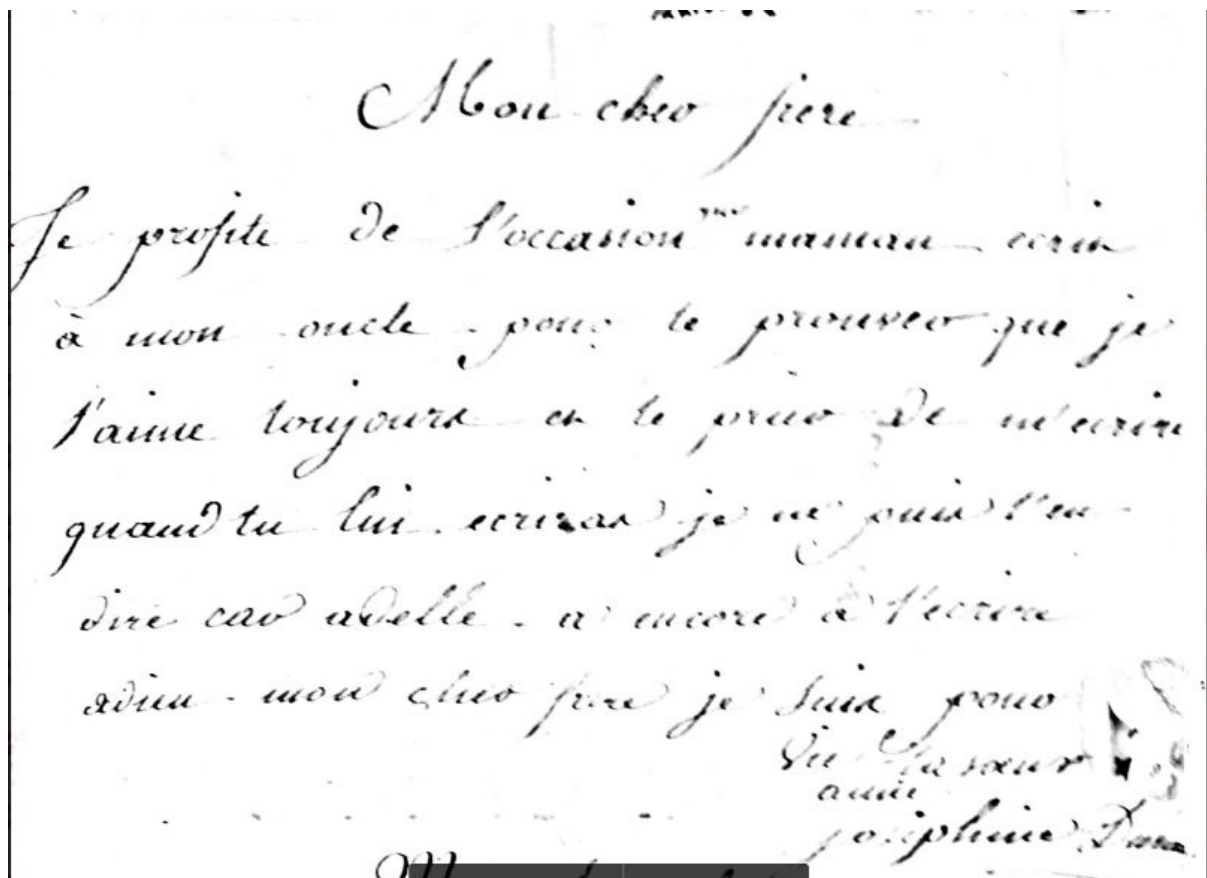 Mon cher frere
Je profite de l'occasion que maman ecrit
à mon oncle pour te prouver que je
t'aime toujours et te prier de m'ecrire
quand tu lui ecriras je ne puis t'en
dire car adelle a encore à t'ecrire
adieu mon cher frere je suis pour
vie ta sœur
amie
josephine